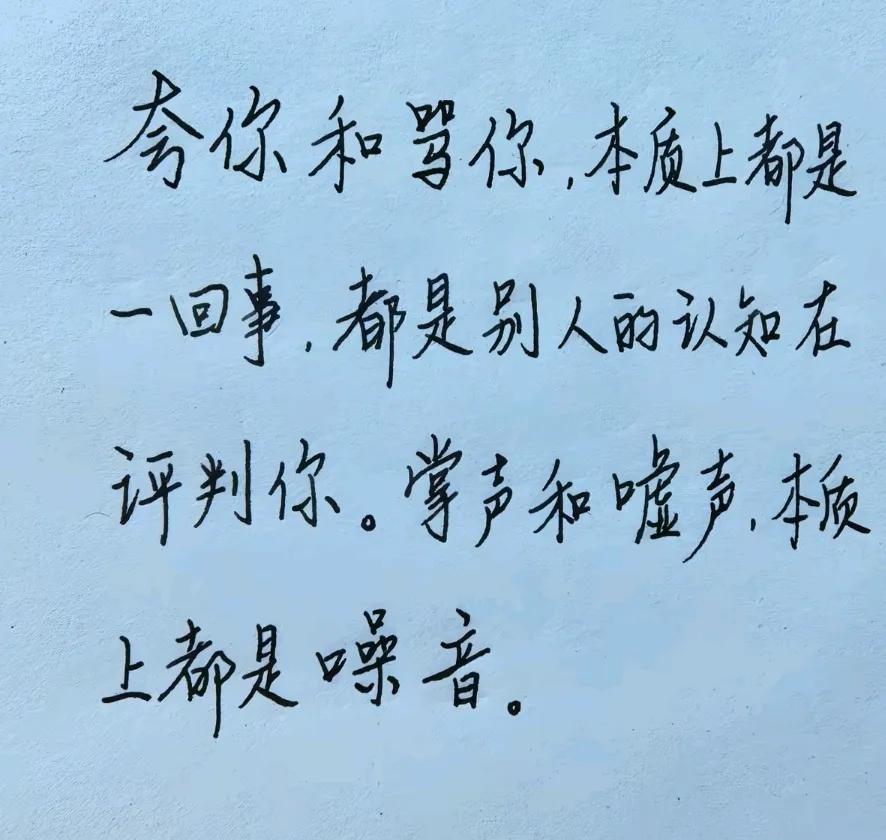 夸你和骂你,本质上都是
一回事,都是别人的认知在
评判你。掌声和嘘声,本质
上都是噪音。